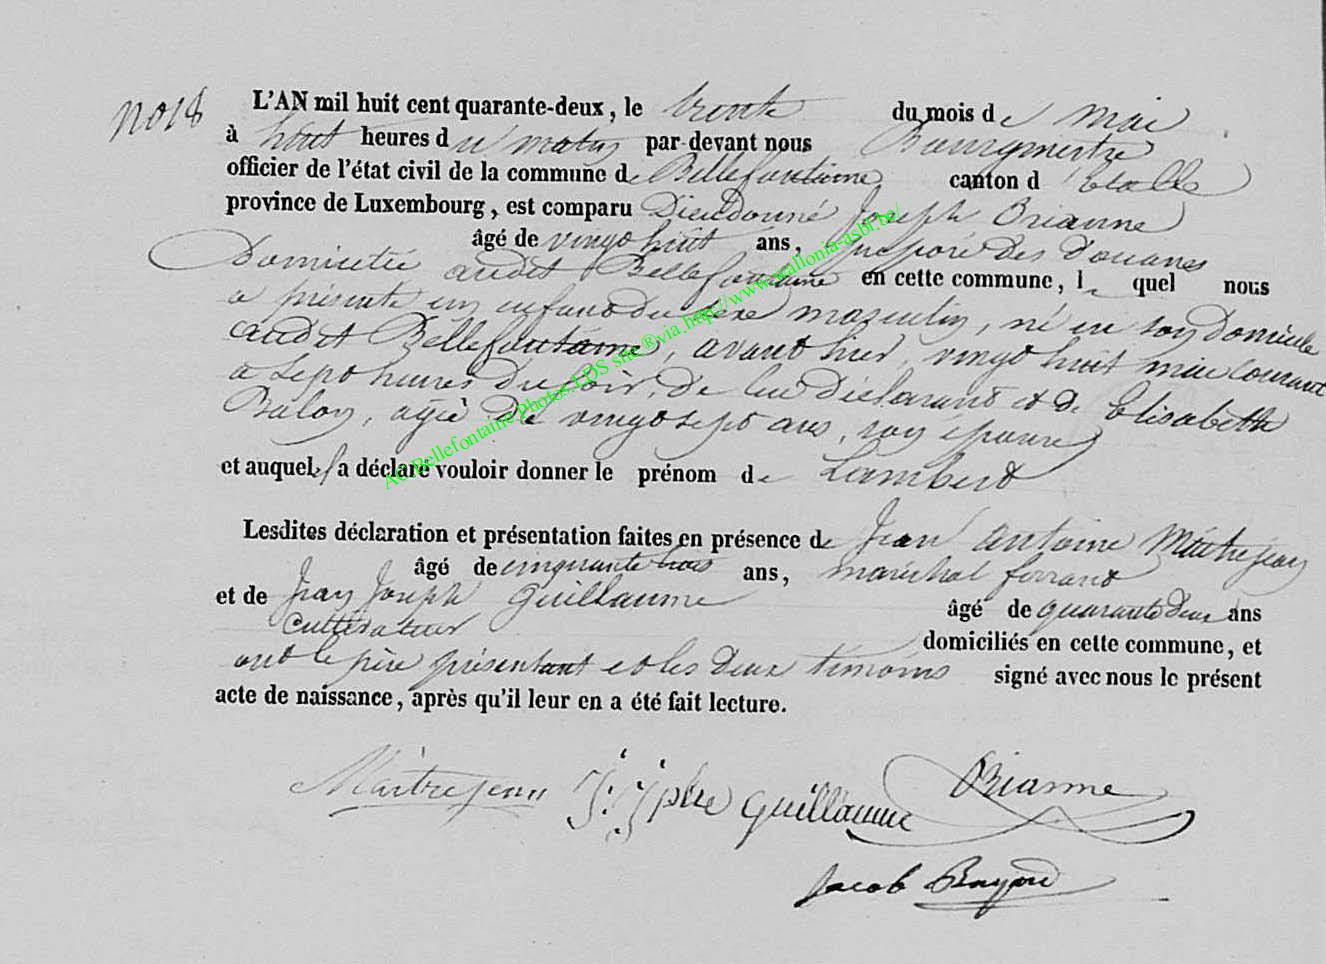 no 18
L'AN mil huit cent quarante-deux, le trente du mois de mai
à huit heures du matin par-devant nous Bourgmestre
officier de l'état civil de la commune de Bellefontaine canton d'Etalle
province de Luxembourg, est comparu Dieudonné Joseph Brianne
âgé de vingt huit ans, préposé des Douanes
Domicilié audit Bellefontaine en cette commune, lequel nous
a présenté un enfant du sexe masculin, né en son Domicile
audit Bellefontaine, avant hier, vingt huit mai courant
a sept heures du soir, de lui déclarant et de Elisabeth
Balon, agée de vingt sept ans, son épouse
et auquel il a déclaré vouloir donner le prénom de Lambert
Lesdites déclaration et présentation faites en présence de Jean Antoine Maitrejean
âgé de cinquante trois ans, maréchal ferrant
et de Jean Joseph Guillaume âgé de quarante deux ans
Cultivateur domiciliés en cette commune, et
ont le père présentant et les deux témoins signé avec nous le présent
acte de naissance, après qu'il leur en a été fait lecture.
Maitrejean J: Jphe Guillaume Brianne
Jacob Bayard
AC Bellefontaine Photos LDS site ® via http://www.wallonia-asbl.be/